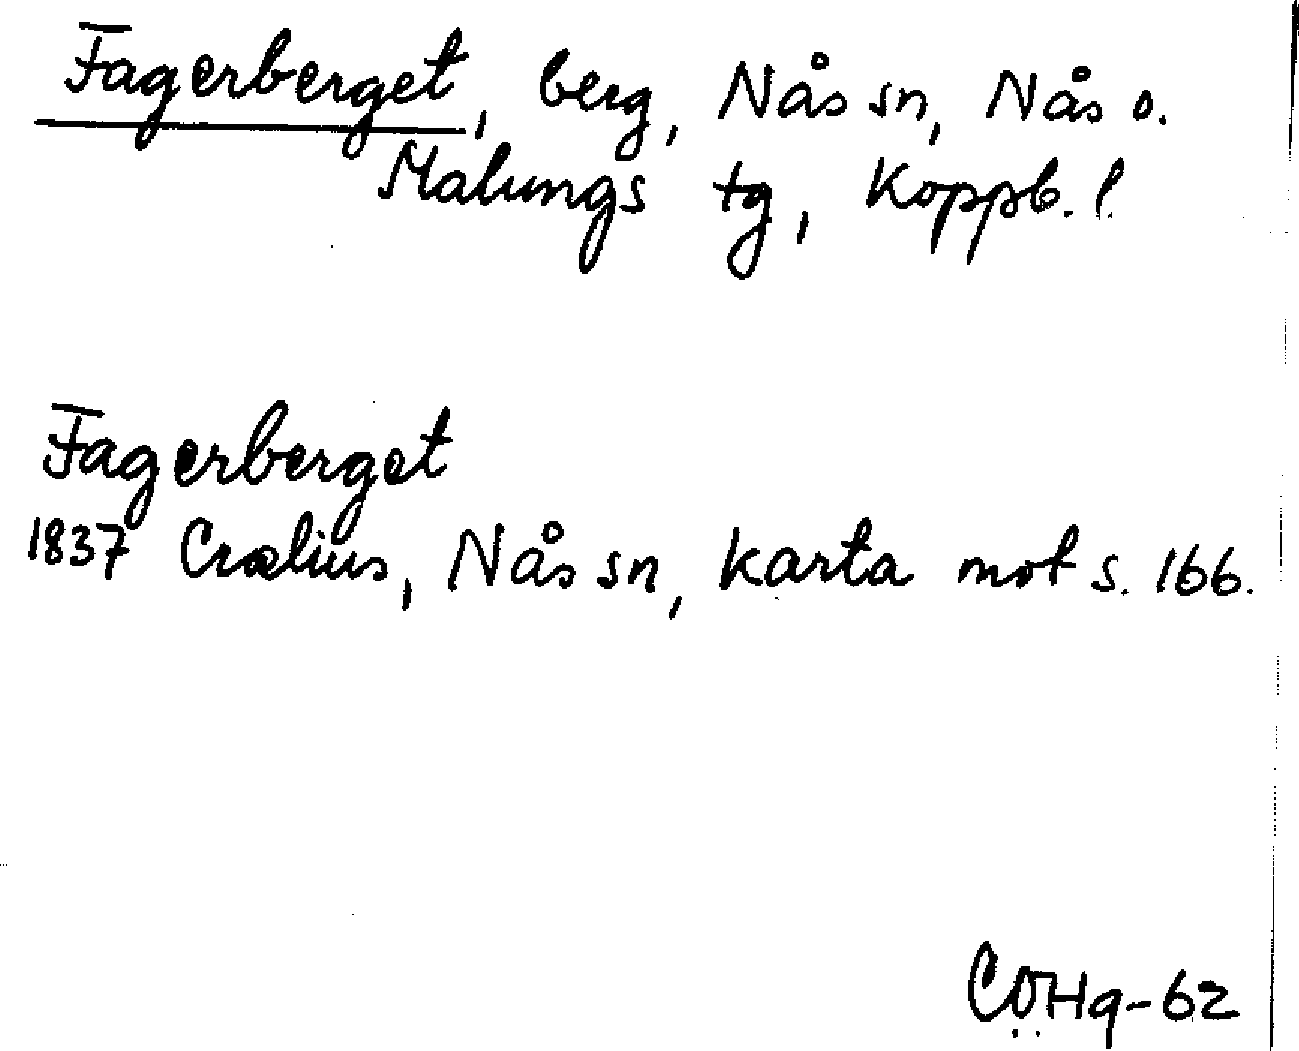 Fagerberget, berg, Nås sn, Nås o.
Malungs tg, Koppb. l.
Fagerberget
1837 Crælius, Nås sn, karta mot s. 166.
COHg-62